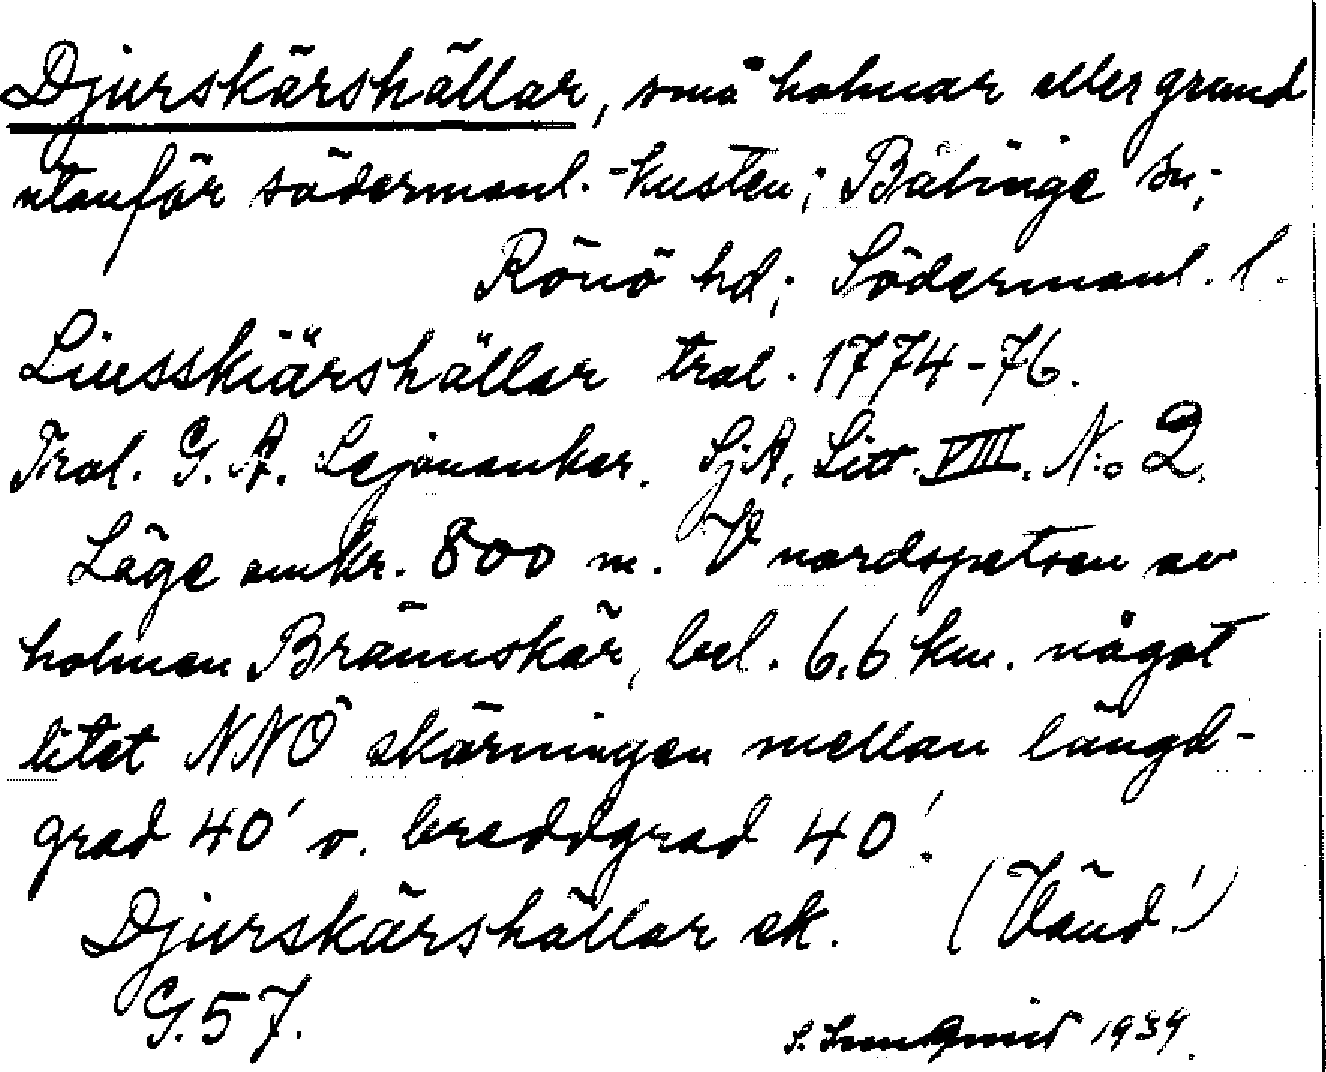 Djurskärshällar, små holmar eller grund
utanför södermanl.-kusten; Bälinge sn;
Rönö hd; Södermanl. l.
Liusskiärshällar tral. 1774-76.
Tral. G. A. Lejonanker. Sj.A. Litt. VIII. N:o 2.
Läge omkr. 800 m. V nordspetsen av
holmen Brännskär, bel. 6,6 km. något
litet NNO skärningen mellan längd-
grad 40' o. breddgrad 40'.
Djurskärshällar ek. (Vänd!)
G. 57.
S. 1939.